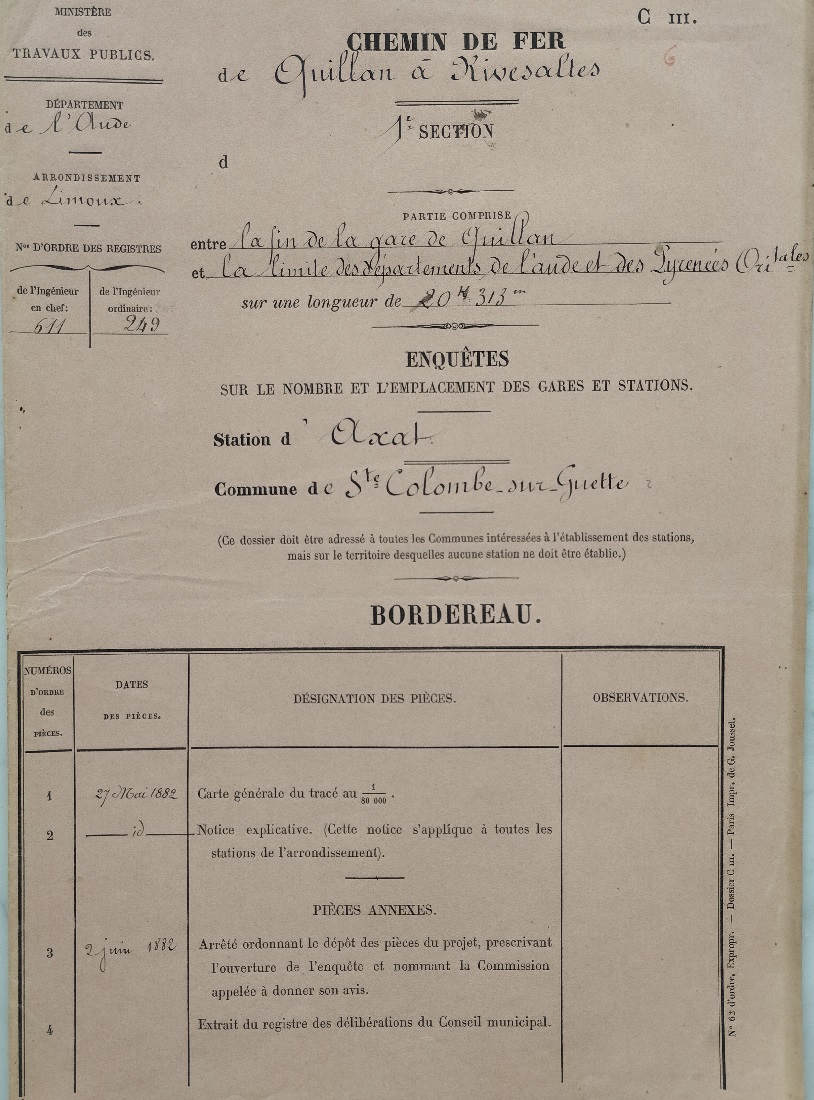 MINISTÈRE
des
TRAVAUX PUBLICS.
DÉPARTEMENT
de l'Aude
ARRONDISSEMENT
de Limoux.
Nos D'ORDRE DES REGISTRES
de l'Ingénieur
en chef:
611
de l'Ingénieur
ordinaire:
249
C III.
6
CHEMIN DE FER
de Quillan à Rivesaltes
1re SECTION
d
PARTIE COMPRISE
entre la fin de la gare de Quillan
et la limite des départements de l'aude et des Pyrenées Ori.tales
sur une longueur de 20 K 313 m
ENQUÊTES
SUR LE NOMBRE ET L'EMPLACEMENT DES GARES ET STATIONS.
Station d'Axat.
Commune de Ste Colombe-sur-Guette
(Ce dossier doit être adressé à toutes les Communes intéressées à l'établissement des stations,
mais sur le territoire desquelles aucune station ne doit être établie.)
BORDEREAU.
NUMÉROS
D'ORDRE
des
PIÈCES.
DATES
DES PIÈCES.
DÉSIGNATION DES PIÈCES.
OBSERVATIONS.
1
27 Mai 1882
Carte générale du tracé au 1/80 000.
2
id
Notice explicative. (Cette notice s'applique à toutes les
stations de l'arrondissement).
PIÈCES ANNEXES.
3
2 juin 1882
Arrêté ordonnant le dépôt des pièces du projet, prescrivant
l'ouverture de l'enquête et nommant la Commission
appelée à donner son avis.
4
Extrait du registre des délibérations du Conseil municipal.
N° 62 d'ordre, Expropr. — Dossier C III. — Paris Impr. de G. Jousset.